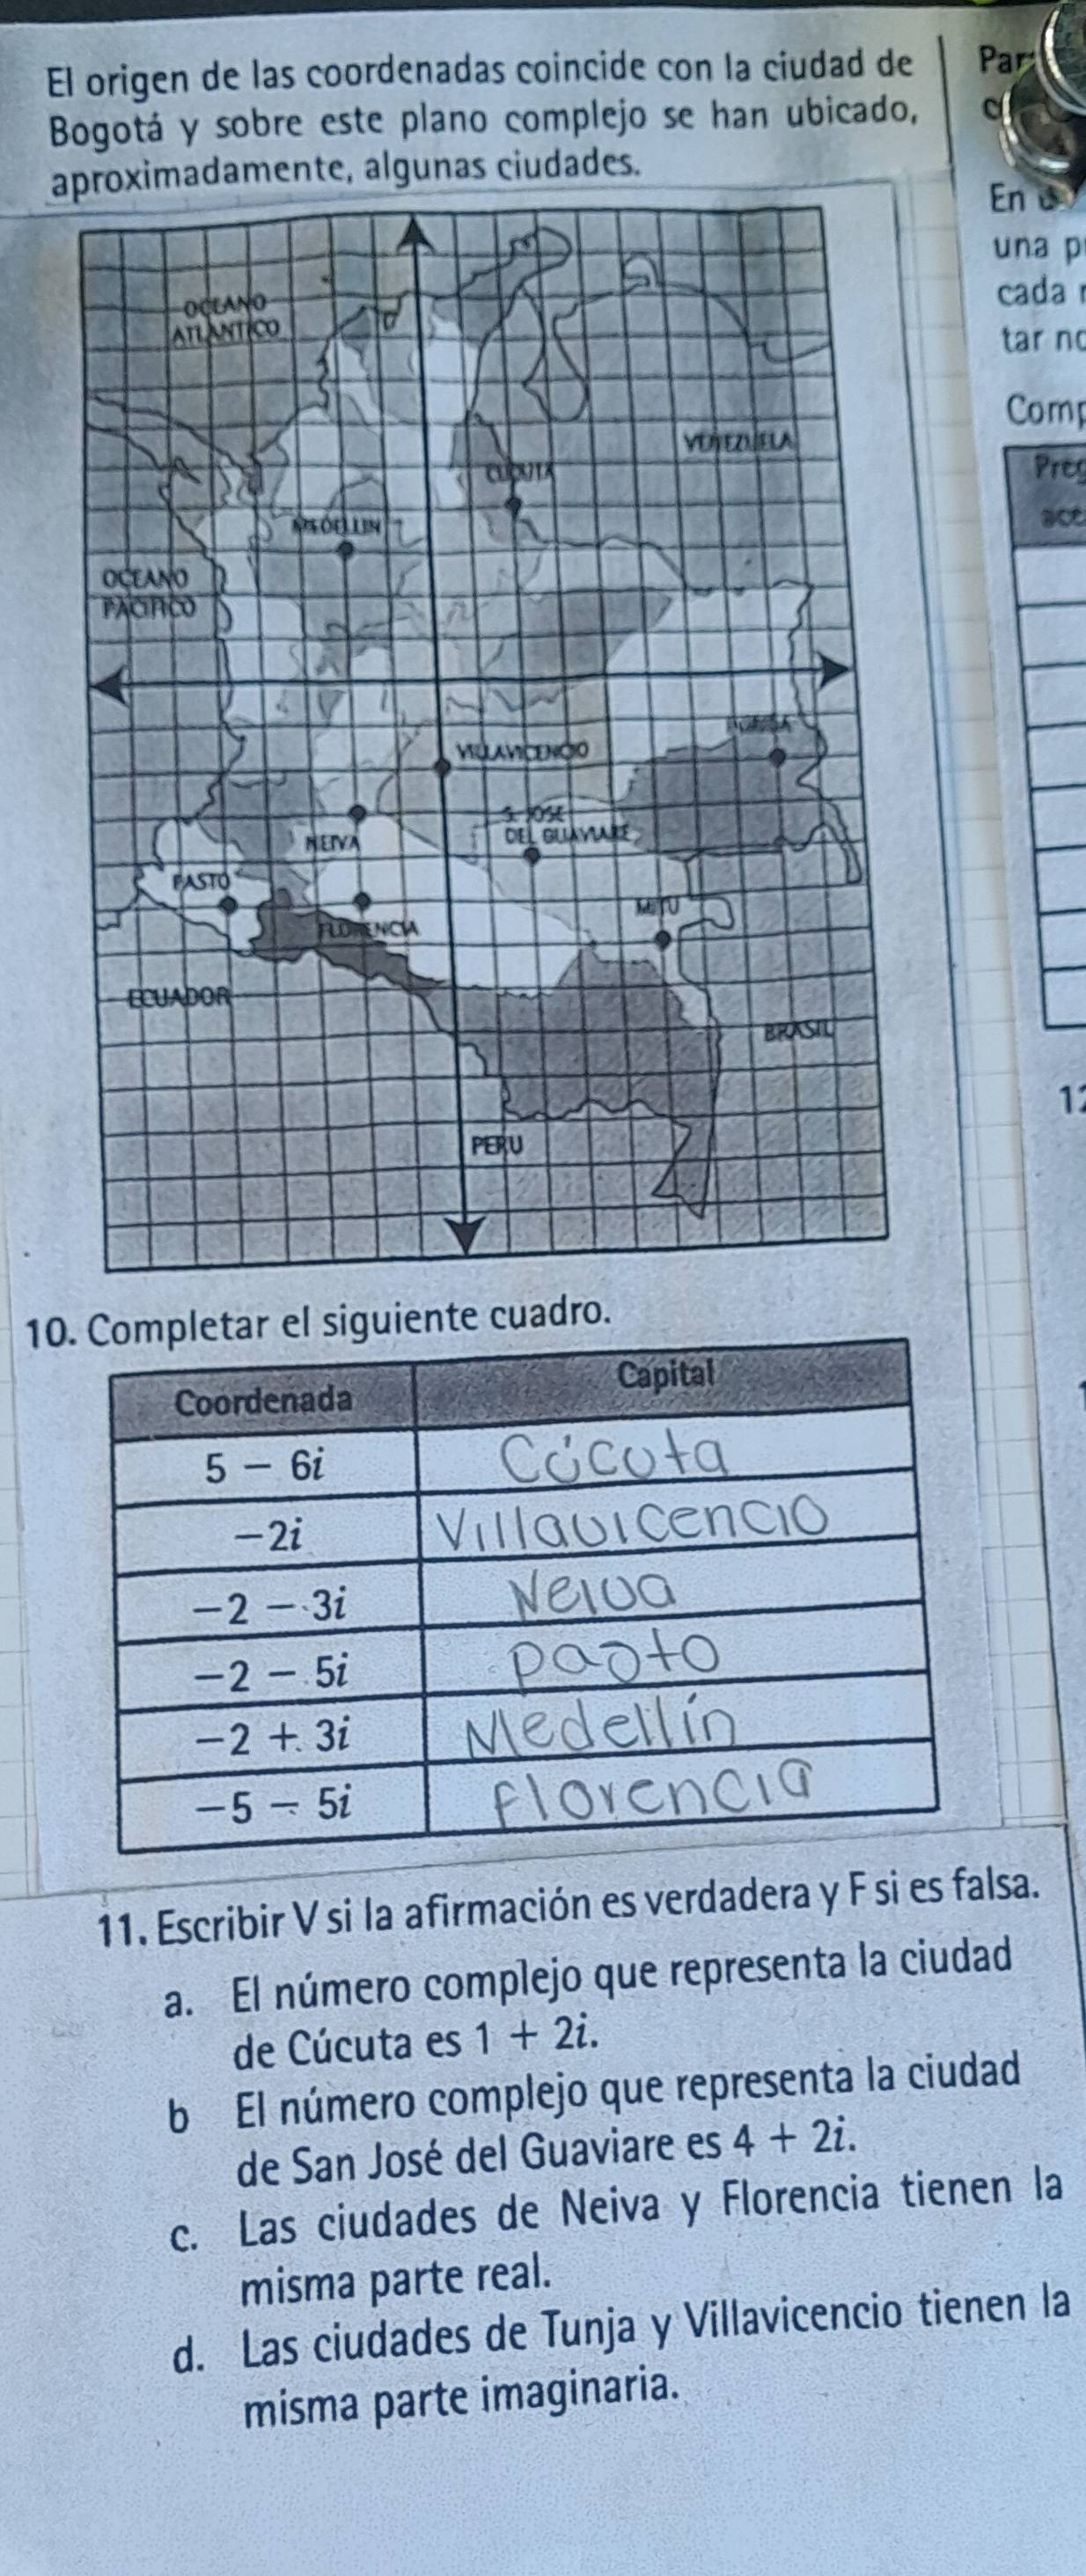 El origen de las coordenadas coincide con la ciudad de
Bogotá y sobre este plano complejo se han ubicado,
aproximadamente, algunas ciudades.
OCEANO
ATLANTICO
VENEZUELA
CUCUTA
MEDELLIN
OCEANO
PACIFICO
VILLAVICENCIO
S. JOSE
DEL GUAVIARE
NEIVA
PASTO
MITU
FLORENCIA
ECUADOR
BRASIL
PERU
10. Completar el siguiente cuadro.
Coordenada Capital
5 - 6i Cúcuta
-2i Villavicencio
-2 - 3i Neiva
-2 - 5i pasto
-2 + 3i Medellín
-5 - 5i florencia
11. Escribir V si la afirmación es verdadera y F si es falsa.
a. El número complejo que representa la ciudad
de Cúcuta es 1 + 2i.
b El número complejo que representa la ciudad
de San José del Guaviare es 4 + 2i.
c. Las ciudades de Neiva y Florencia tienen la
misma parte real.
d. Las ciudades de Tunja y Villavicencio tienen la
misma parte imaginaria.
En
una
cada
tar